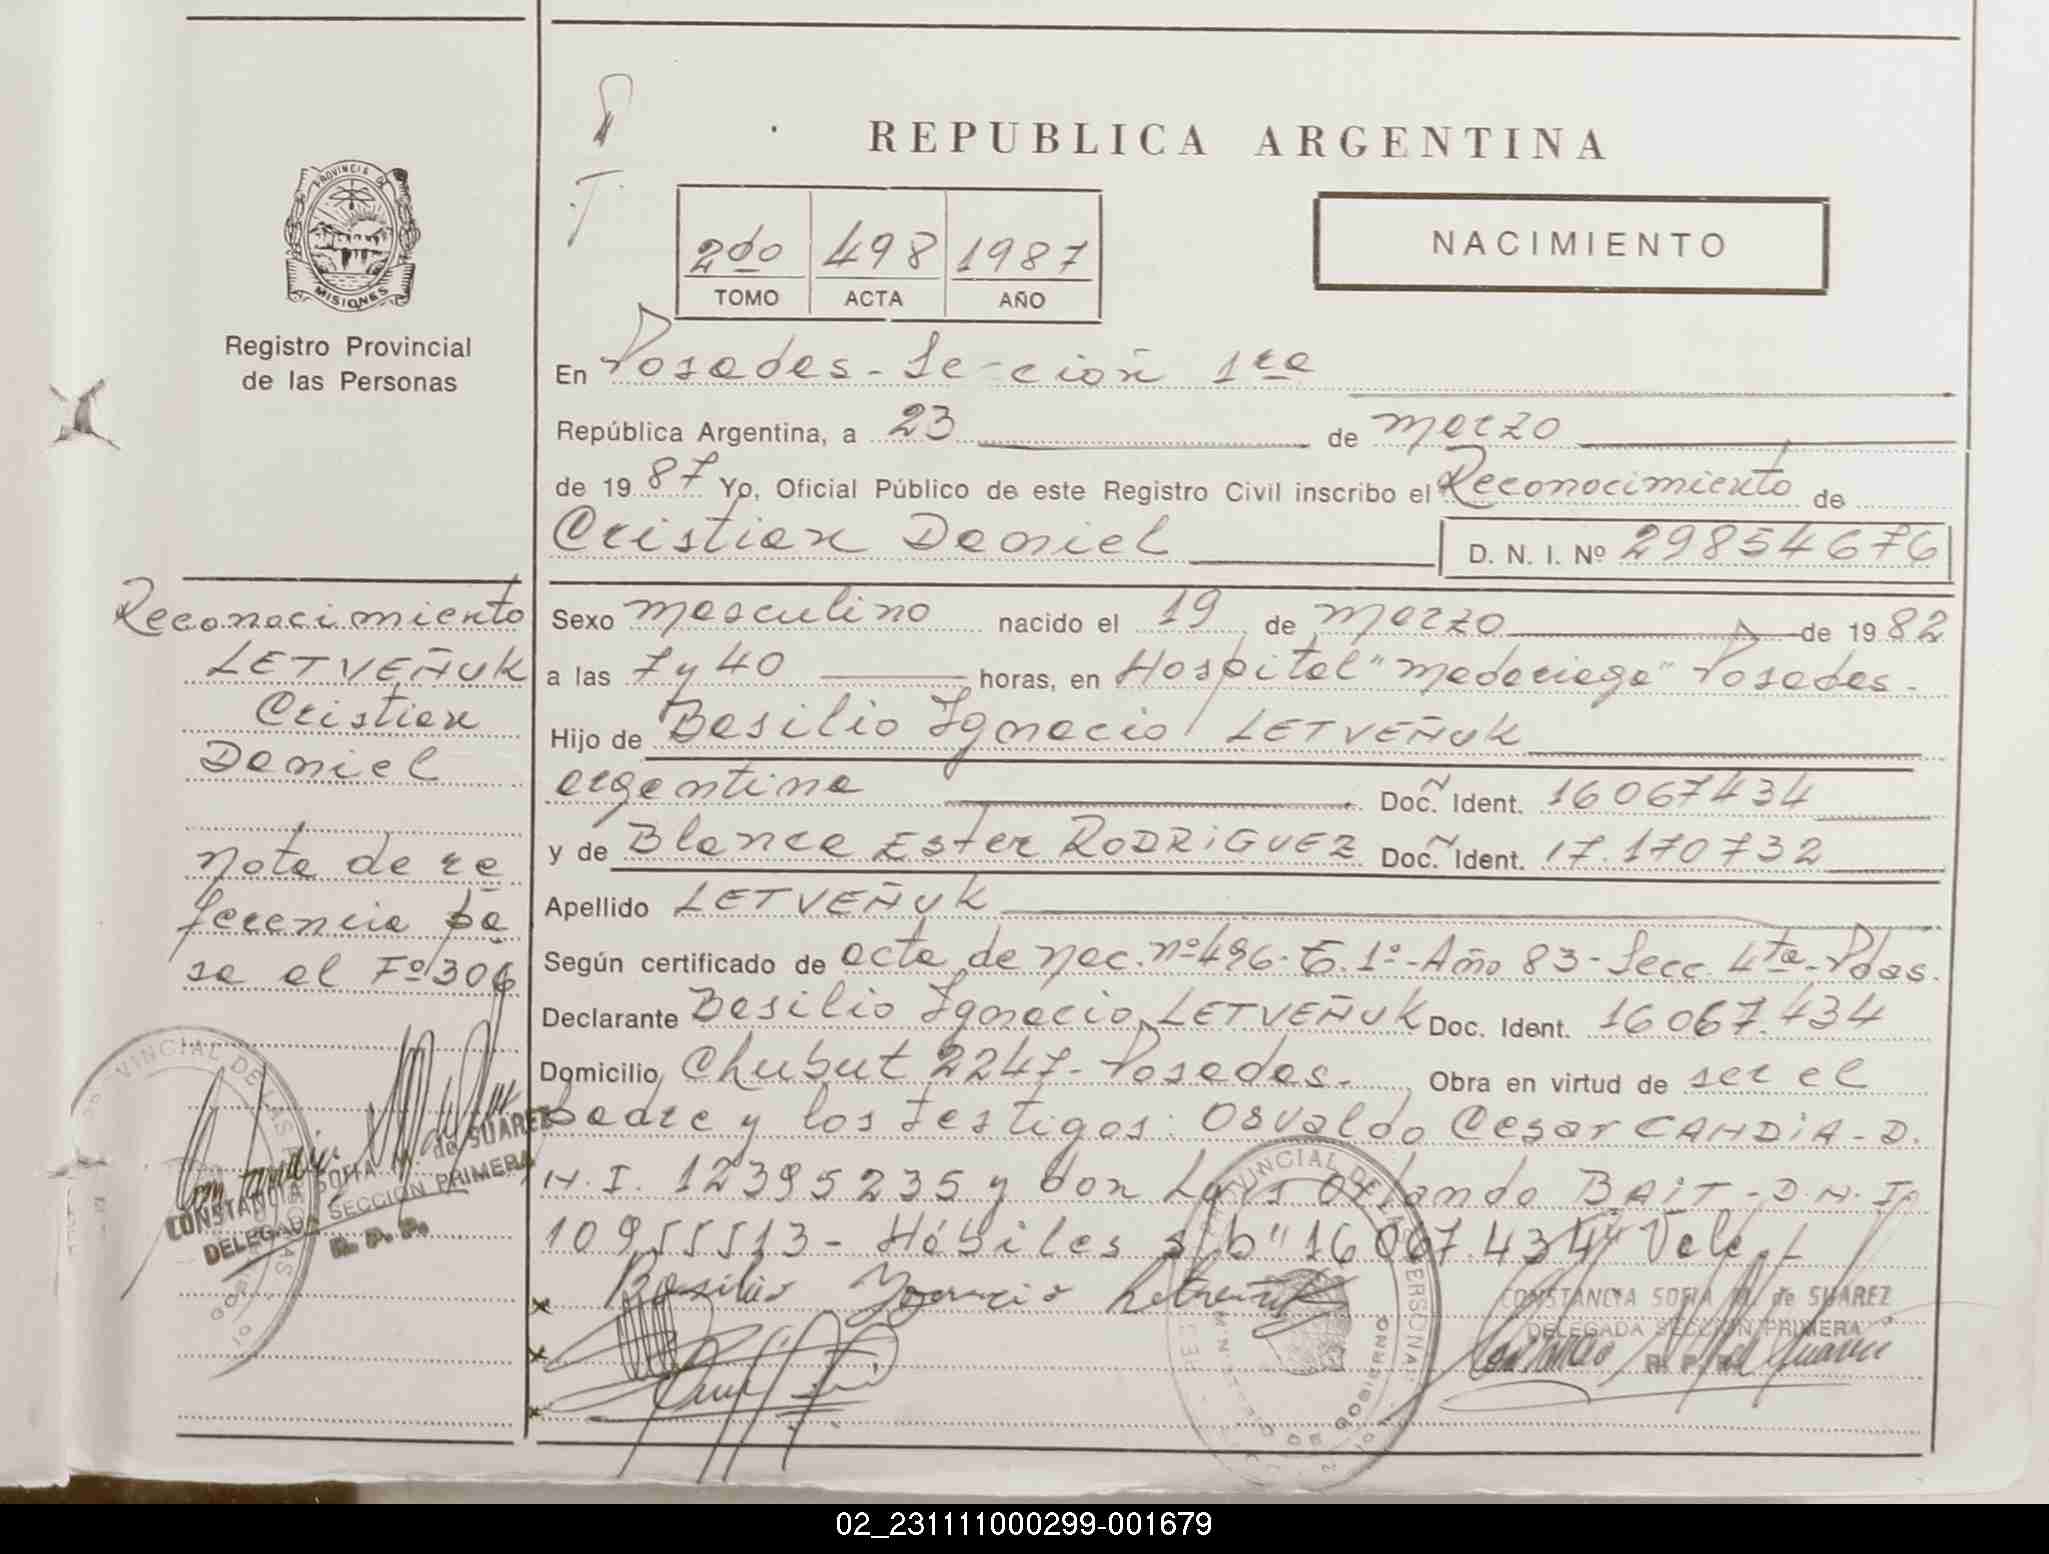 REPUBLICA ARGENTINA
2do 498 1987
TOMO ACTA AÑO
NACIMIENTO
PROVINCIA DE
MISIONES
Registro Provincial
de las Personas
En Posadas - Sección 1ra
República Argentina, a 23 de marzo
de 1987 Yo, Oficial Público de este Registro Civil inscribo el Reconocimiento de
Cristian Daniel D. N. I. Nº 298554676
Sexo masculino nacido el 19 de marzo de 1982
a las 7 y 40 horas, en Hospital "Madariaga" Posadas.
Hijo de Basilio Ignacio LETVEÑUK
argentina Doc. Ident. 16067434
y de Blanca Ester RODRIGUEZ Doc. Ident. 17.170732
Apellido LETVEÑUK
Según certificado de acta de nac. nº 496 - T. 1º - Año 83 - Secc. 4ta - Pdas.
Declarante Basilio Ignacio LETVEÑUK Doc. Ident. 16067.434
Domicilio Chubut 2247 - Posadas. Obra en virtud de ser el
padre y los testigos: Osvaldo Cesar CANDIA - D.
N. I. 12395235 y don Luis Orlando BAIT - D. N. I.
10955513 - Hábiles s/b "16067.434" Vale.
Basilio Ignacio Letveñuk
CONSTANCIA SOFIA M. de SUAREZ
DELEGADA SECCION PRIMERA
R. P. P.
Reconocimiento
LETVEÑUK
Cristian
Daniel
nota de re
ferencia pa
sa al Fº 306
CONSTANCIA SOFIA M. de SUAREZ
DELEGADA SECCION PRIMERA
R. P. P.
02_231111000299-001679